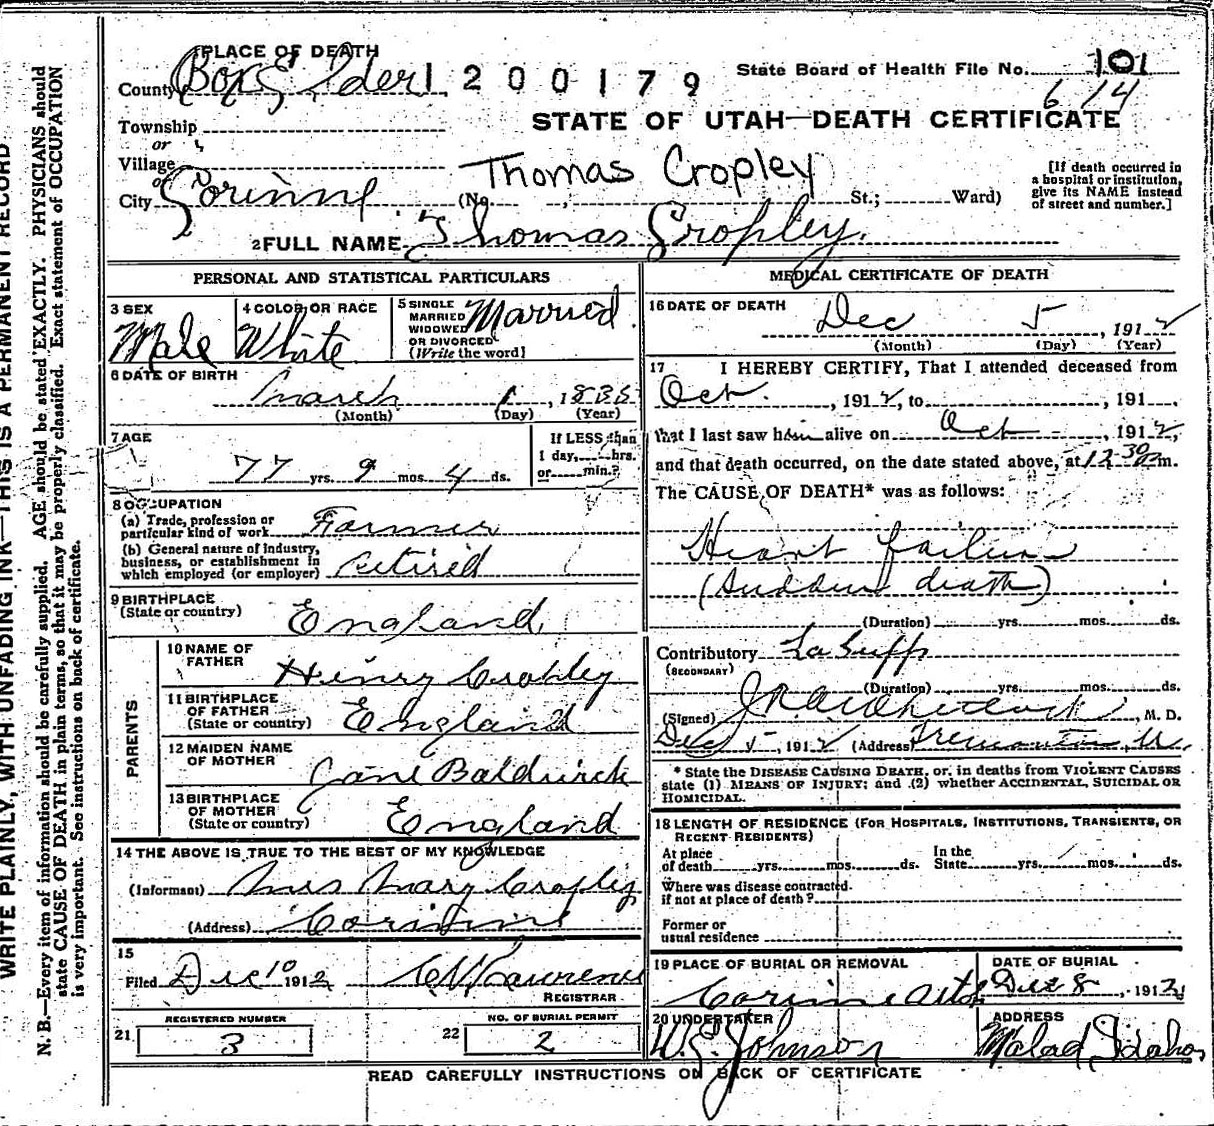 PLACE OF DEATH
County Box Elder 1200179 State Board of Health File No. 101
6 14
STATE OF UTAH—DEATH CERTIFICATE
Township
or
Village
Thomas Cropley
[If death occurred in a hospital or institution, give its NAME instead of street and number.]
or
City Corinne (No. , St.; Ward)
2 FULL NAME Thomas Cropley.
PERSONAL AND STATISTICAL PARTICULARS
3 SEX
Male
4 COLOR OR RACE
White
5 SINGLE
MARRIED
WIDOWED
OR DIVORCED
(Write the word)
Married
6 DATE OF BIRTH
March 1, 1835
(Month) (Day) (Year)
7 AGE
77 yrs. 9 mos. 4 ds.
If LESS than
1 day, hrs.
or min.?
8 OCCUPATION
(a) Trade, profession or
particular kind of work Farmer
(b) General nature of industry,
business, or establishment in
which employed (or employer) retired
9 BIRTHPLACE
(State or country) England
PARENTS
10 NAME OF
FATHER Henry Cropley
11 BIRTHPLACE
OF FATHER
(State or country) England
12 MAIDEN NAME
OF MOTHER Jane Baldwick
13 BIRTHPLACE
OF MOTHER
(State or country) England
14 THE ABOVE IS TRUE TO THE BEST OF MY KNOWLEDGE
(Informant) Mrs Mary Cropley
(Address) Corinne
15
Filed Dec 10 1912 Lawrence
REGISTRAR
REGISTERED NUMBER
21 3
NO. OF BURIAL PERMIT
22 2
MEDICAL CERTIFICATE OF DEATH
16 DATE OF DEATH
Dec 5, 1912
(Month) (Day) (Year)
17 I HEREBY CERTIFY, That I attended deceased from
Oct. , 1912, to , 191 .
that I last saw him alive on Oct , 1912,
and that death occurred, on the date stated above, at 12 30 m.
The CAUSE OF DEATH* was as follows:
Heart failure
(Sudden death)
(Duration) yrs. mos. ds.
Contributory La Gripp
(SECONDARY)
(Duration) yrs. mos. ds.
(Signed) , M. D.
Dec 5, 1912 (Address) Tremonton, U.
* State the DISEASE CAUSING DEATH, or, in deaths from VIOLENT CAUSES
state (1) MEANS OF INJURY; and (2) whether ACCIDENTAL, SUICIDAL OR
HOMICIDAL.
18 LENGTH OF RESIDENCE (FOR HOSPITALS, INSTITUTIONS, TRANSIENTS, OR
RECENT RESIDENTS)
At place
of death yrs. mos. ds.
In the
State yrs. mos. ds.
Where was disease contracted
if not at place of death?
Former or
usual residence
19 PLACE OF BURIAL OR REMOVAL
Corinne
DATE OF BURIAL
Dec 8, 1912
20 UNDERTAKER
W. E. Johnson
ADDRESS
Malad, Idaho
READ CAREFULLY INSTRUCTIONS ON BACK OF CERTIFICATE
WRITE PLAINLY, WITH UNFADING INK—THIS IS A PERMANENT RECORD
N. B.—Every item of information should be carefully supplied. AGE should be stated EXACTLY. PHYSICIANS should
state CAUSE OF DEATH in plain terms, so that it may be properly classified. Exact statement of OCCUPATION
is very important. See instructions on back of certificate.